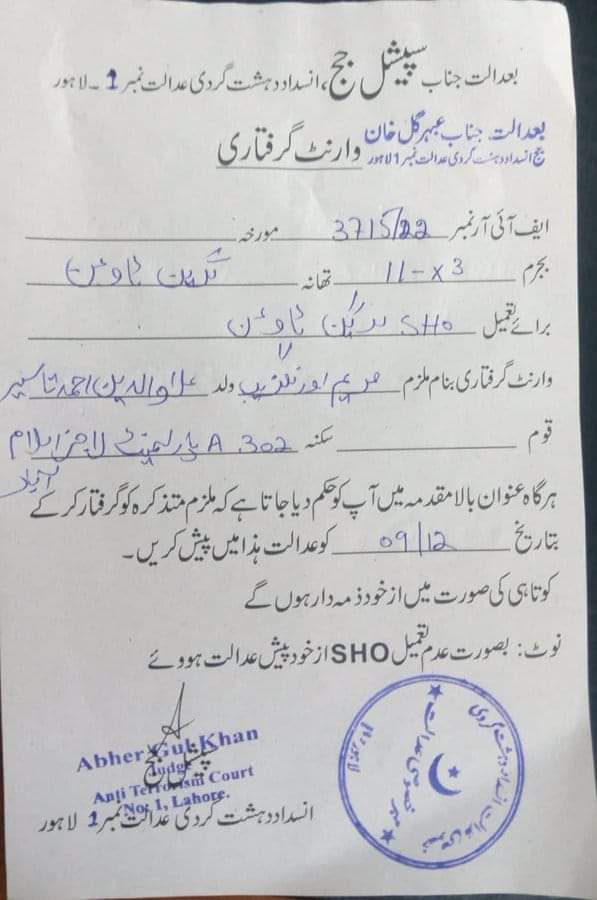 بعدالت جناب سپیشل جج، انسداد دہشت گردی عدالت نمبر 1۔ لاہور
بعدالت جناب عبہر گل خان
جج انسداد دہشت گردی عدالت نمبر 1 لاہور
وارنٹ گرفتاری
ایف آئی آر نمبر 3715/22 مورخہ
بجرم 11-X3 تھانہ گرین ٹاؤن
برائے تعمیل SHO گرین ٹاؤن
وارنٹ گرفتاری بنام ملزم مریم اورنگزیب ولد احمد
قوم سکنہ A 302 پارلیمنٹ لاجز اسلام
آباد
ہرگاہ عنوان بالا مقدمہ میں آپ کو حکم دیا جاتا ہے کہ ملزم متذکرہ کو گرفتار کر کے
بتاریخ 09/12 کو عدالت ہذا میں پیش کریں۔
کوتاہی کی صورت میں از خود ذمہ دار ہوں گے
نوٹ: بصورت عدم تعمیل SHO از خود پیش عدالت ہووئے
Abher Gul Khan
Judge
Anti Terrorism Court
No: 1, Lahore.
سپیشل جج
انسداد دہشت گردی عدالت نمبر 1 لاہور